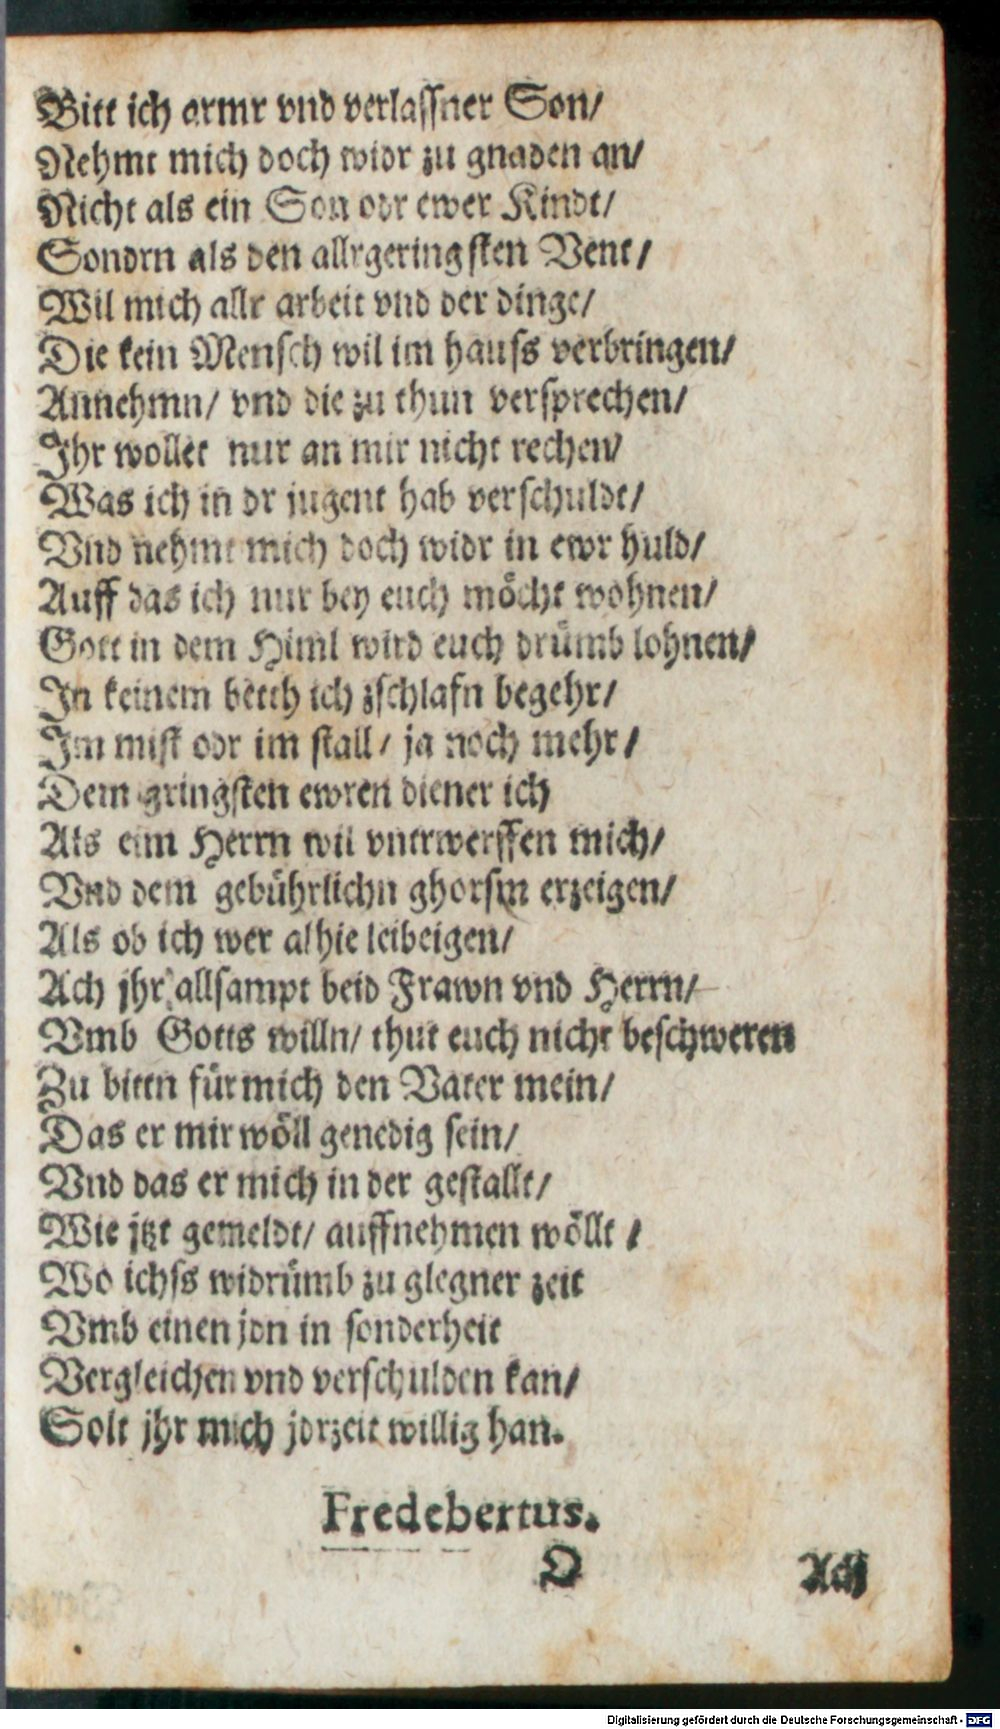 Bitt ich armr vnd verlassner Son/
Nehmt mich doch widr zu gnaden an/
Nicht als ein Son odr ewer Kindt/
Sondrn als den allrgeringsten Vent/
Wil mich allr arbeit vnd der dinge/
Die kein Mensch wil im hauss verbringen/
Annehmn/ vnd die zu thun versprechen/
Ihr wollet nur an mir nicht rechen/
Was ich in dr jugent hab verschuldt/
Vnd nehmt mich doch widr in ewr huld/
Auff das ich nur bey euch möcht wohnen/
Gott in dem Himl wird euch drümb lohnen/
In keinem betth ich zschlafn begehr/
Im mist odr im stall/ ja noch mehr/
Dem gringsten ewren diener ich
Als eim Herrn wil vntrwerffen mich/
Vnd dem gebührlichn ghorsm erzeigen/
Als ob ich wer alhie leibeigen/
Ach jhr allsampt beid Frawn vnd Herrn/
Vmb Gotts willn/ thut euch nicht beschweren
Zu bittn für mich den Vater mein/
Das er mir wöll genedig sein/
Vnd das er mich in der gestallt/
Wie jtzt gemeldt/ auffnehmen wöllt/
Wo ichss widrümb zu glegner zeit
Vmb einen jdn in sonderheit
Vergleichen vnd verschulden kan/
Solt jhr mich jdrzeit willig han.
Fredebertus.
D
Ach
Digitalisierung gefördert durch die Deutsche Forschungsgemeinschaft - DFG